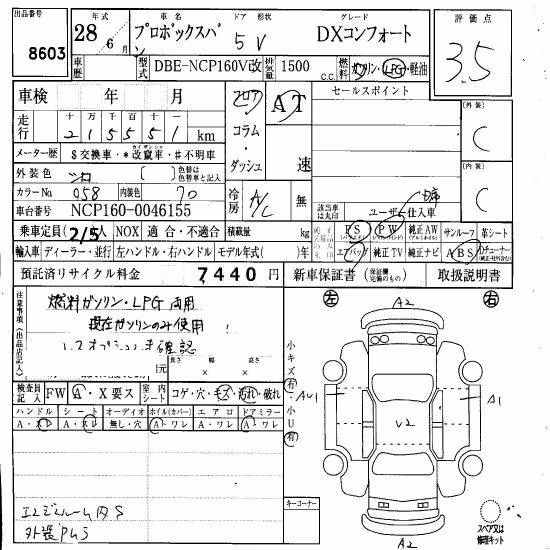 出品番号 8603
年式 28 6月
車名 プロボックスバン
ドア 形状 5V
グレード DXコンフォート
評価点 3.5
車歴
型式 DBE-NCP160V改
排気量 1500 C.C.
燃料 ガソリン・LPG・軽油
車検 年 月
フロア AT
セールスポイント
走行 十万千百十一
215551 km
コラム・
ダッシュ 速
メーター歴 $交換車・*改竄車・#不明車
カイザンシャ
外装色 シロ 〔 〕 色替は色替車と記入
カラーNo. 058 内装色 70
冷房 A/C 無
(外装) C
(内装) C
車台番号 NCP160-0046155
該当車は丸印
ユーザー仕入車
乗車定員(2/5)人 NOX 適合・不適合 積載量 kg
PS (パワステ) PW (パワーウインド) 純正AW (アルミホイル) サンルーフ 革シート
輸入車 ディーラー・並行 左ハンドル・右ハンドル モデル年式( )年
エアバッグ 純正TV 純正ナビ ABS
預託済リサイクル料金 7,440円
新車保証書 (保証欄完備のもの) 取扱説明書
注意事項(出品店記入)
燃料ガソリン・LPG両用
現在ガソリンのみ使用
確認
長さ 幅 高さ
左 右
A2
小キズ有・小U有
AU1 U2 A1
検査員記入 FW A・X要ス 室内シート コゲ・穴・キズ・汚れ・破れ
ハンドル シート オーディオ ホイル(カバー) エアロ ドアミラー
A・スレ A・スレ 無し・穴 A・ワレ A・ワレ A・ワレ
エンジンルーム内S
外装PMS
キーコーナー
A2
スペア又は修理キット